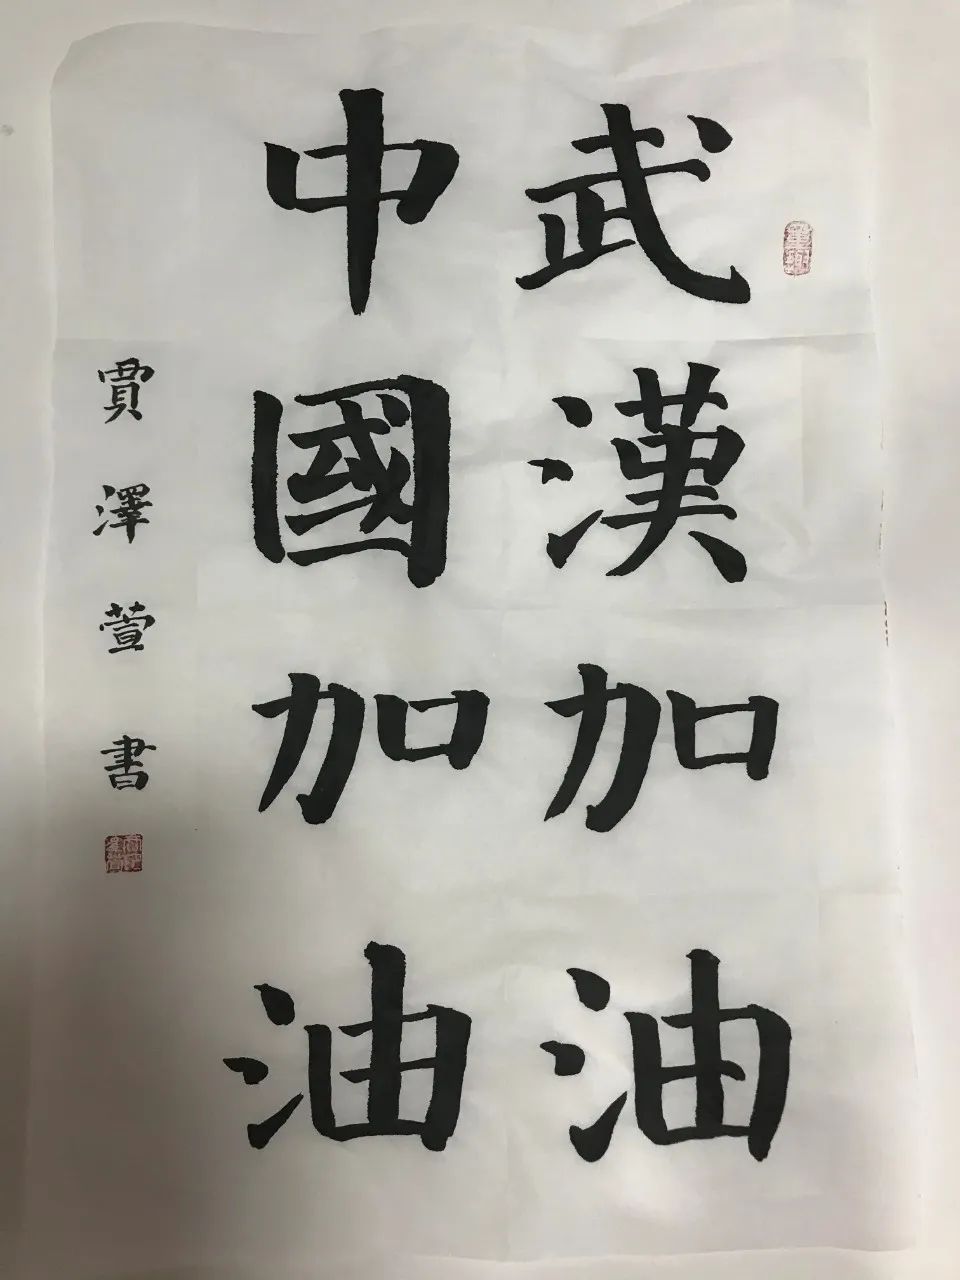 武漢加油
中國加油
賈澤萱書